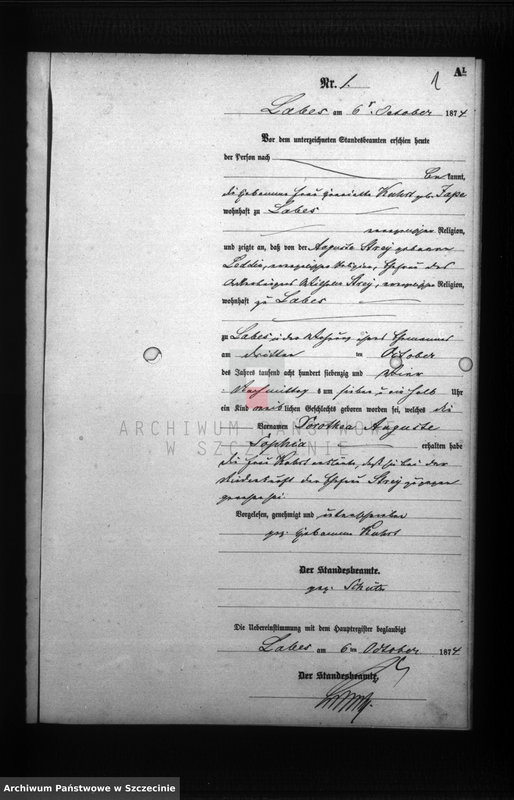 A1.
1
Nr. 1.
Labes am 6 October 1874
Vor dem unterzeichneten Standesbeamten erschien heute
der Person nach
be kannt,
die Hebamme Frau Henriette Kuhrt geb.
wohnhaft zu Labes
evangelischer Religion,
und zeigte an, daß von der Auguste Strej geborene
evangelischer Religion, Ehefrau des
Ackerbürgers Wilhelm Strej, evangelischer Religion,
wohnhaft zu Labes
zu Labes in der Wohnung ihres Ehemannes
am dritten ten October
des Jahres tausend acht hundert siebenzig und vier
Nachmittag s um sieben u ein halb Uhr
ein Kind weib lichen Geschlechts geboren worden sei, welches die
Vornamen Dorothea Auguste
Sophia erhalten habe
die Frau Kuhrt erklärte, daß sie bei der
Niederkunft der Ehefrau Strej zugegen
gewesen sei.
Vorgelesen, genehmigt und unterschrieben
gez. Hebamme Kuhrt
Der Standesbeamte.
gez. Schütz
Die Uebereinstimmung mit dem Hauptregister beglaubigt
Labes am 6 ten October 1874
Der Standesbeamte,
ARCHIWUM PAŃSTWOWE
W SZCZECINIE
Archiwum Państwowe w Szczecinie